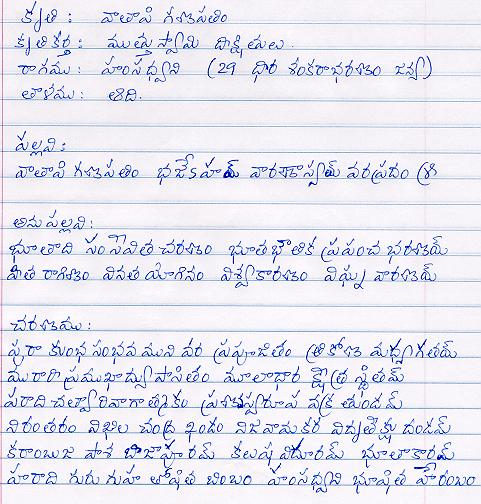 కృతి : వాతాపి గణపతిం
కృతికర్త : ముత్తుస్వామి దీక్షితులు.
రాగము : హంసధ్వని (29 ధీర శంకరాభరణం జన్య)
తాళము : ఆది.
పల్లవి:
వాతాపి గణపతిం భజేఽహమ్ వారణాస్యమ్ వరప్రదం శ్రీ
అనుపల్లవి:
భూతాది సంసేవిత చరణం భూతభౌతిక ప్రపంచ భరణమ్
వీత రాగిణం వినత యోగినం విశ్వకారణం విఘ్న వారణమ్
చరణము :
పురా కుంభసంభవ ముని వర ప్రపూజితం త్రికోణ మధ్యగతమ్
మురారి ప్రముఖాద్యుపాసితం మూలాధార క్షేత్ర స్థితమ్
పరాది చత్వారి వాగాత్మకం ప్రణవస్వరూప వక్ర తుండమ్
నిరంతరం నిఖిల చంద్ర ఖండం నిజవామకర విధృతేక్షు దండమ్
కరాంబుజ పాశ బీజాపూరమ్ కలుష విదూరమ్ భూతాకారమ్
హరాది గురు గుహ తోషిత బింబం హంసధ్వని భూషిత హేరంబం